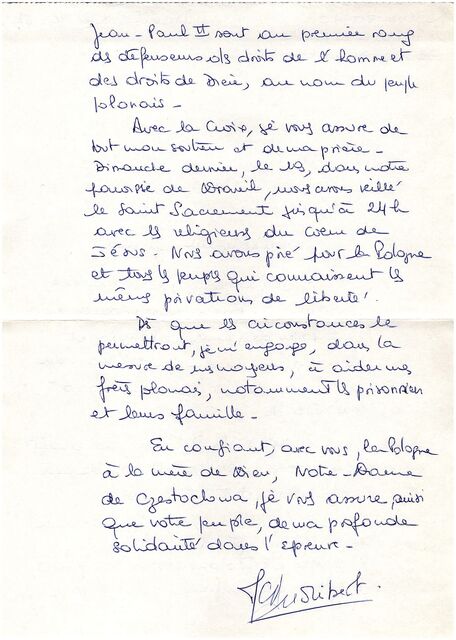 Jean-Paul II sont au premier rang
des défenseurs des droits de l'homme et
des droits de Dieu, au nom du peuple
polonais -
Avec la Croix, je vous assure de
tout mon soutien et de ma prière -
Dimanche dernier, le 19, dans notre
paroisse de Draveil, nous avons veillé
le Saint Sacrement jusqu'à 24h
avec les religieuses du Coeur de
Jésus. Nous avons prié pour la Pologne
et tous les peuples qui connaissent les
mêmes privations de liberté.
Dès que les circonstances le
permettront, je m'engage, dans la
mesure de mes moyens, à aider mes
frères polonais, notamment les prisonniers
et leurs famille -
En confiant, avec vous, la Pologne
à la mère de Dieu, Notre-Dame
de Czestochowa, je vous assure, ainsi
que votre peuple, de ma profonde
solidarité dans l'épreuve -